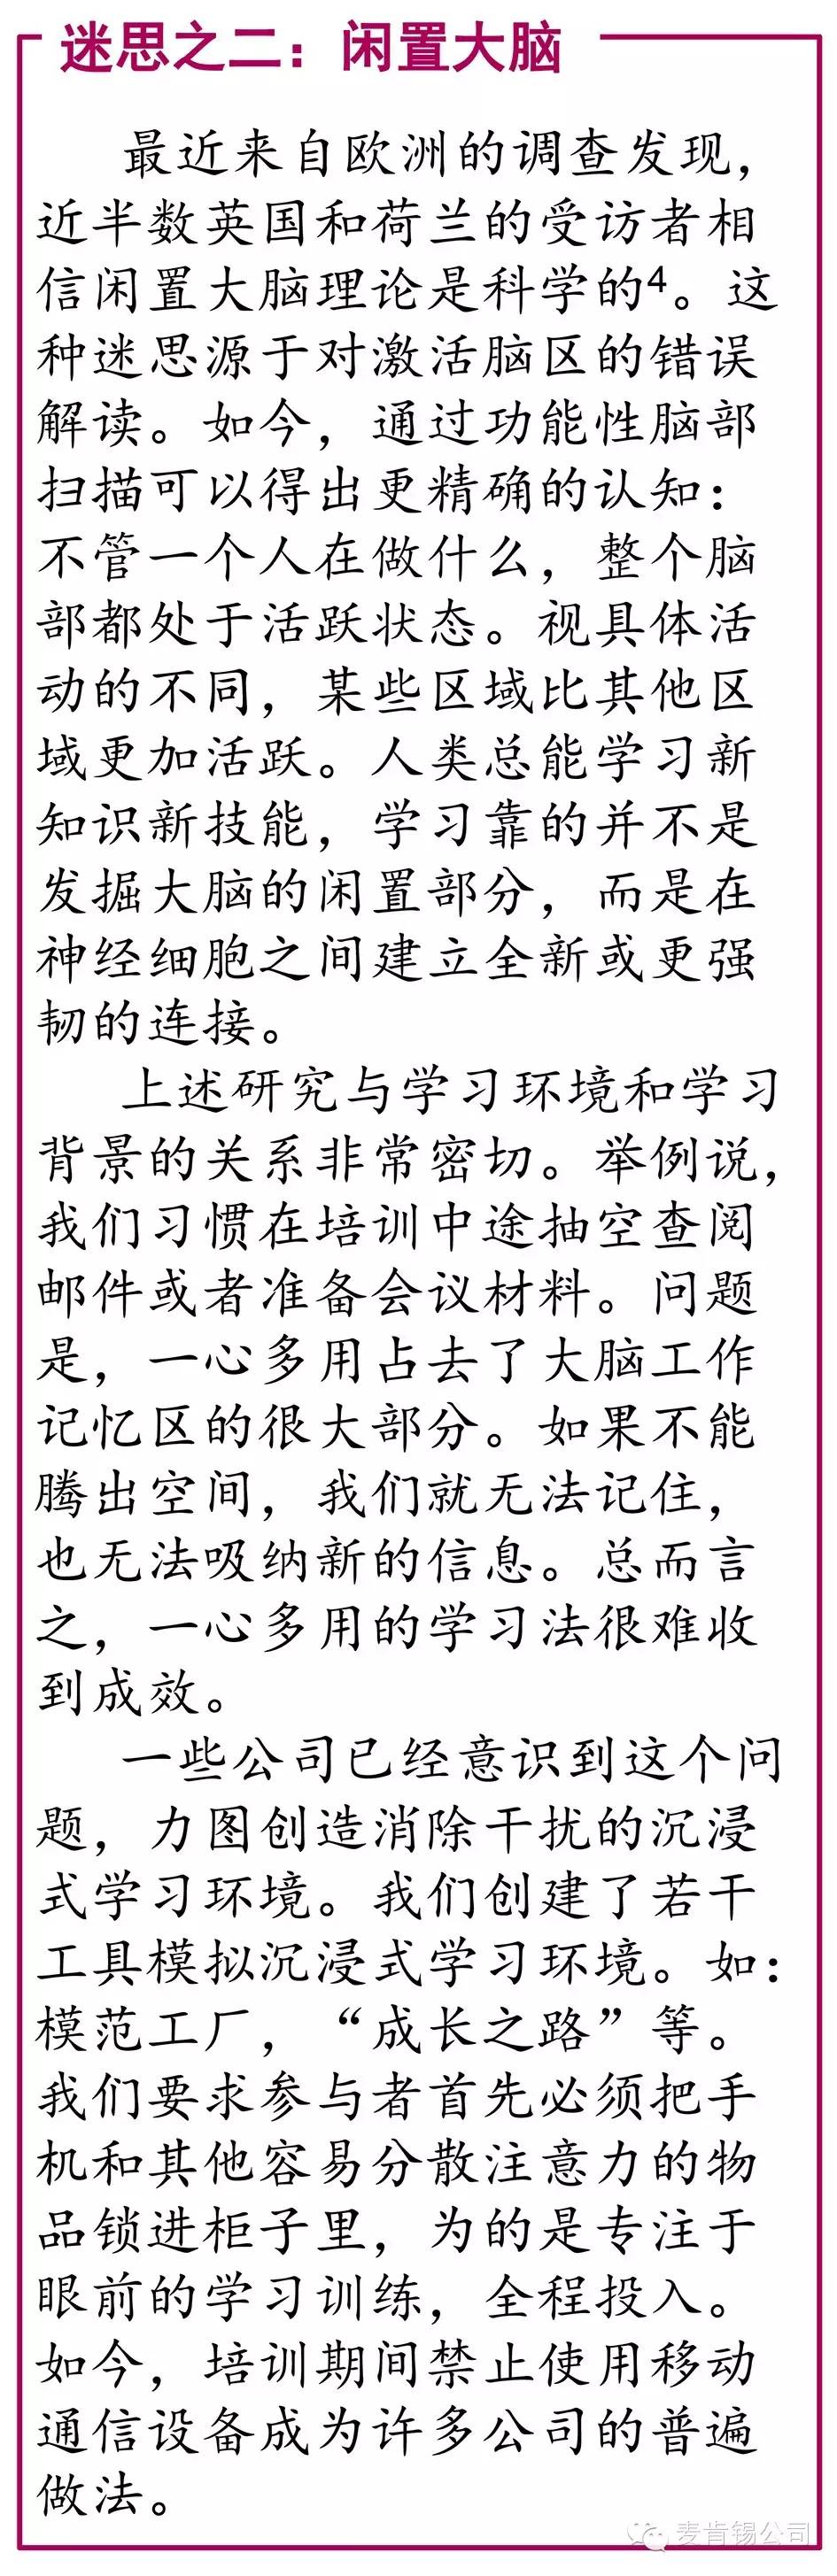 迷思之二：闲置大脑
最近来自欧洲的调查发现，
近半数英国和荷兰的受访者相
信闲置大脑理论是科学的4。这
种迷思源于对激活脑区的错误
解读。如今，通过功能性脑部
扫描可以得出更精确的认知：
不管一个人在做什么，整个脑
部都处于活跃状态。视具体活
动的不同，某些区域比其他区
域更加活跃。人类总能学习新
知识新技能，学习靠的并不是
发掘大脑的闲置部分，而是在
神经细胞之间建立全新或更强
韧的连接。
上述研究与学习环境和学习
背景的关系非常密切。举例说，
我们习惯在培训中途抽空查阅
邮件或者准备会议材料。问题
是，一心多用占去了大脑工作
记忆区的很大部分。如果不能
腾出空间，我们就无法记住，
也无法吸纳新的信息。总而言
之，一心多用的学习法很难收
到成效。
一些公司已经意识到这个问
题，力图创造消除干扰的沉浸
式学习环境。我们创建了若干
工具模拟沉浸式学习环境。如：
模范工厂，“成长之路”等。
我们要求参与者首先必须把手
机和其他容易分散注意力的物
品锁进柜子里，为的是专注于
眼前的学习训练，全程投入。
如今，培训期间禁止使用移动
通信设备成为许多公司的普遍
做法。
麦肯锡公司